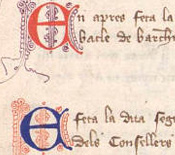 En apres fera la
batle de barch
E fera la dita seg
dels Consellers